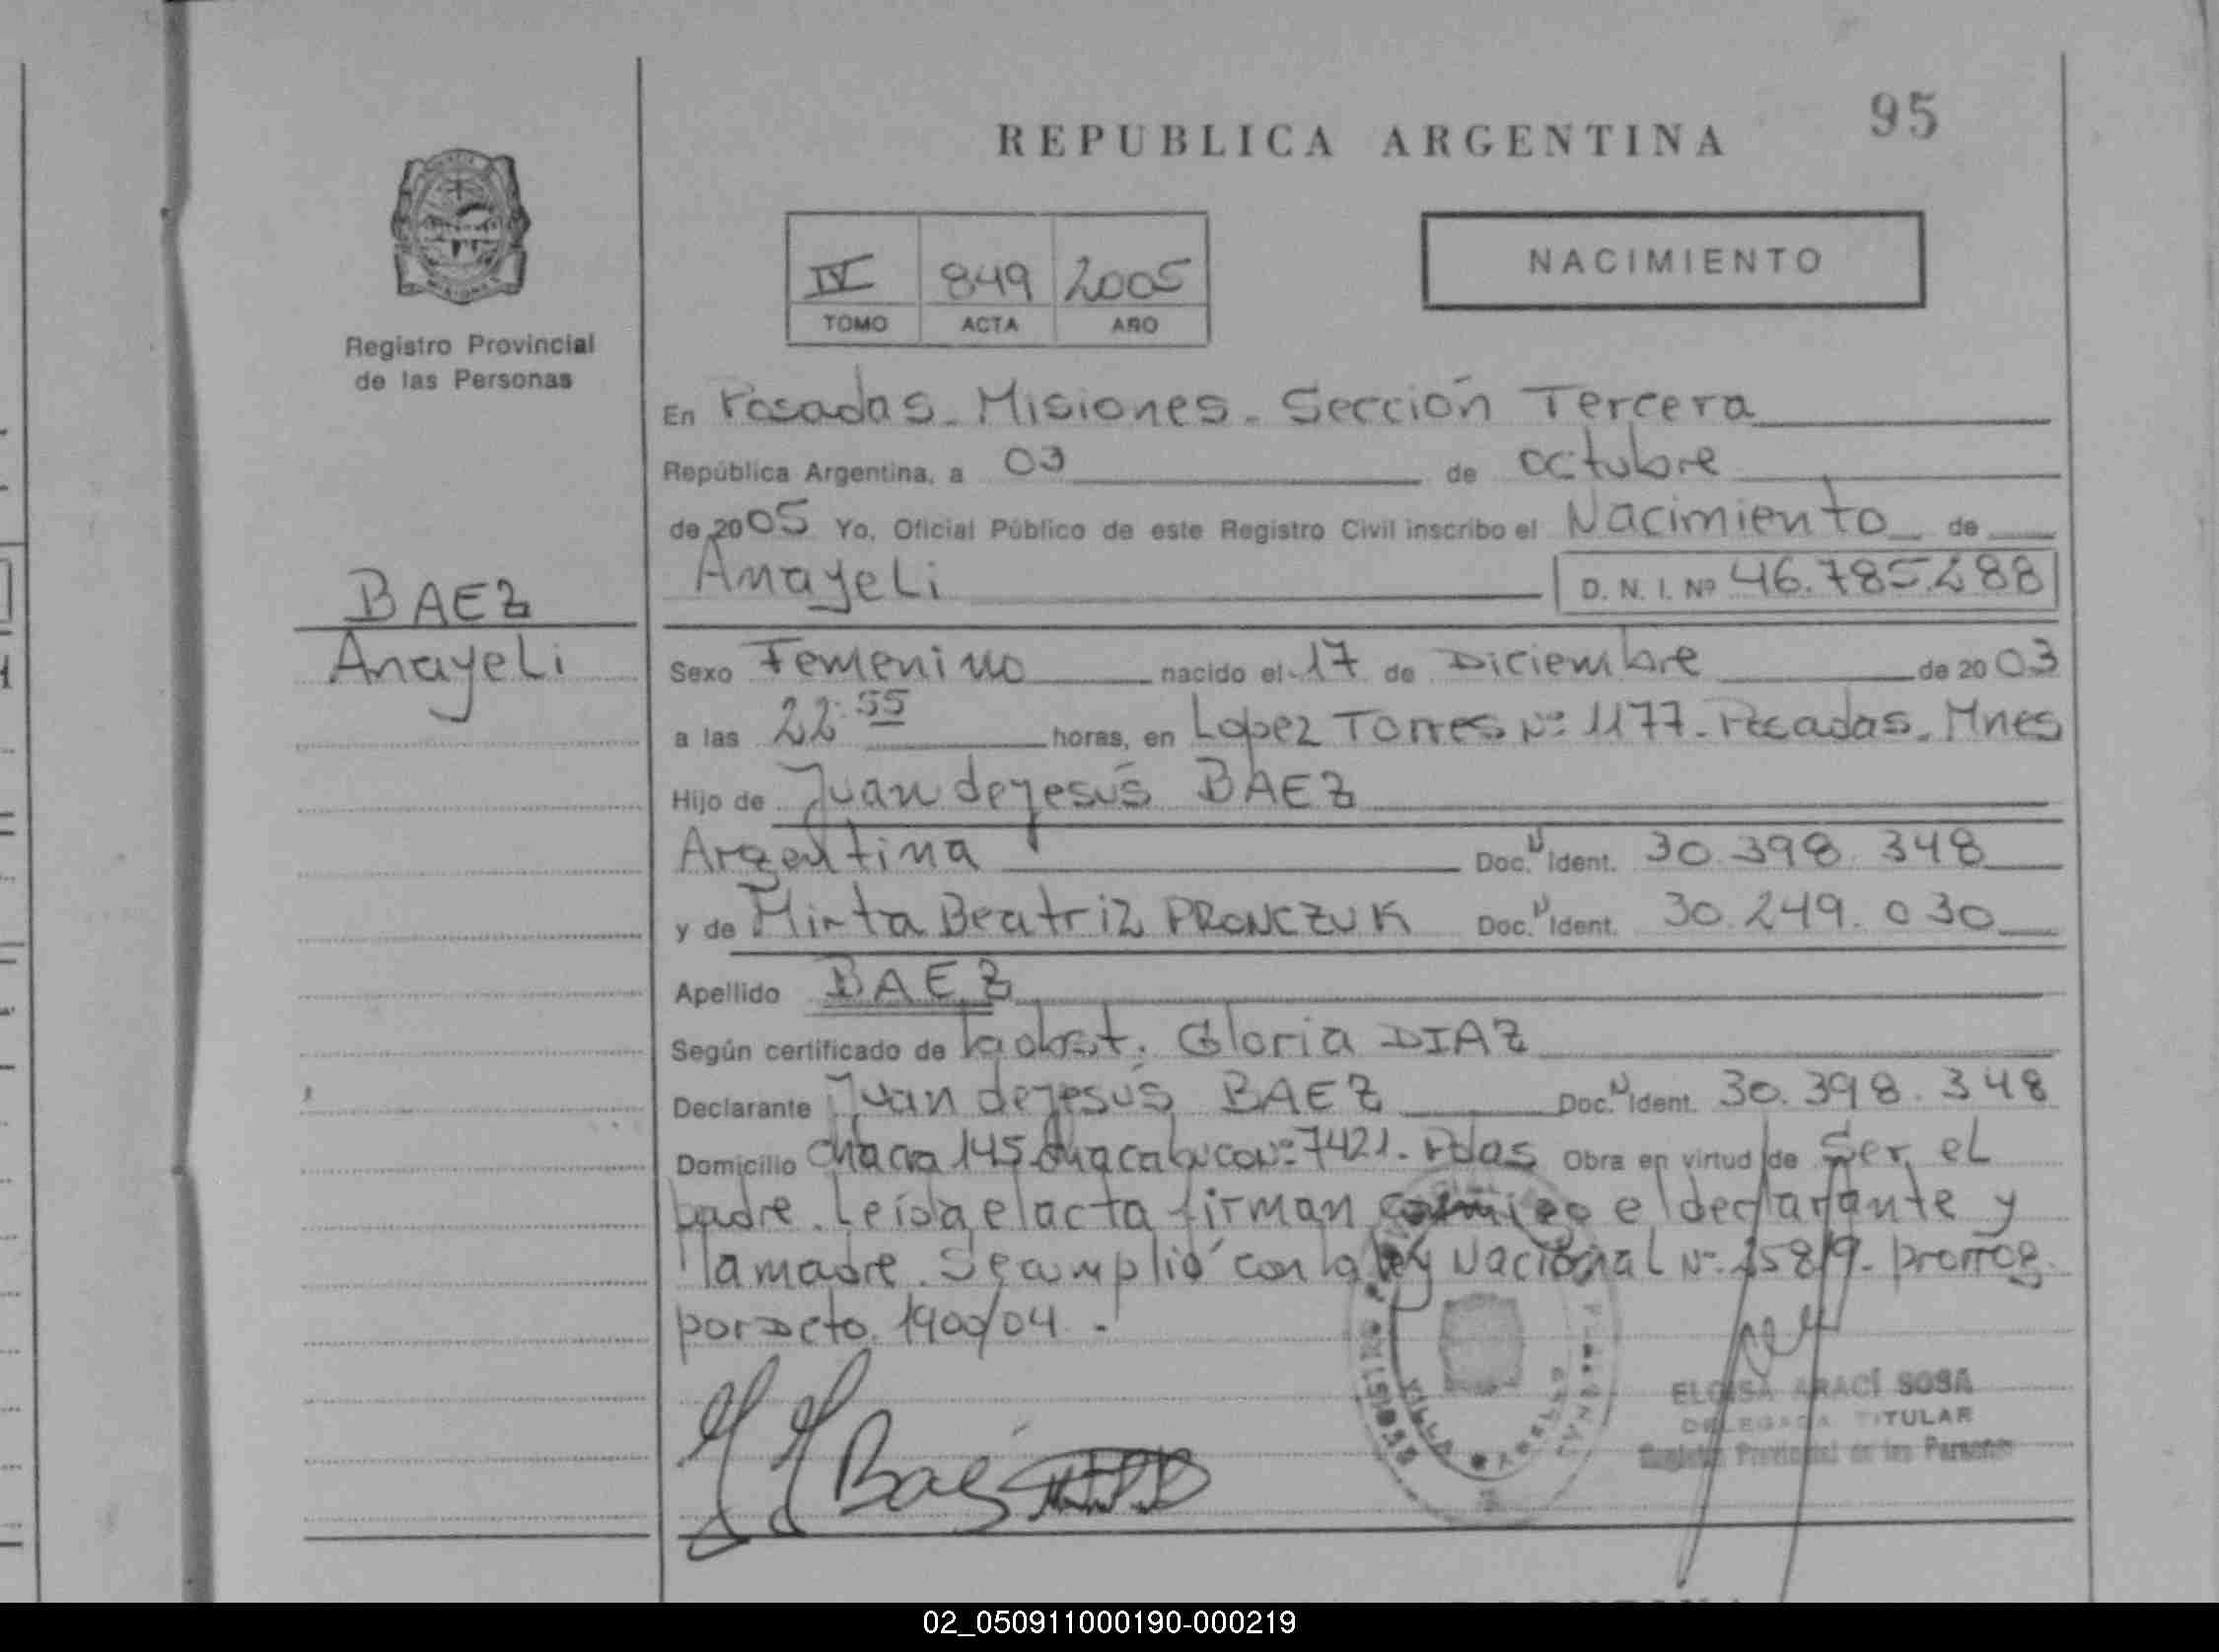 95
REPUBLICA ARGENTINA
NACIMIENTO
IV 849 2005
TOMO ACTA AÑO
Registro Provincial
de las Personas
BAEZ
Anayeli
En Posadas - Misiones - Sección Tercera
República Argentina, a 03 de octubre
de 2005 Yo, Oficial Público de este Registro Civil inscribo el Nacimiento de
Anayeli D. N. I. Nº 46.785.288
Sexo Femenino nacido el 17 de Diciembre de 2003
a las 22:55 horas, en Lopez Torres Nº 1177 - Posadas. Mnes
Hijo de Juan de Jesús BAEZ
Argentina Doc. N Ident. 30.398.348
y de Mirta Beatriz PRONCZUK Doc. N Ident. 30.249.030
Apellido BAEZ
Según certificado de la obst. Gloria DIAZ
Declarante Juan de Jesús BAEZ Doc. N Ident. 30.398.348
Domicilio Chacra 145 Chacabuco Nº 7421 - Pdas Obra en virtud de Ser el
padre. Leída el acta firman conmigo el declarante y
la madre. Se cumplió con la Ley Nacional Nº 25819 - prorrog.
por Dcto. 1900/04 .-
Baez
ELOISA ARACÍ SOSA
DELEGADA TITULAR
Registro Provincial de las Personas
02_050911000190-000219